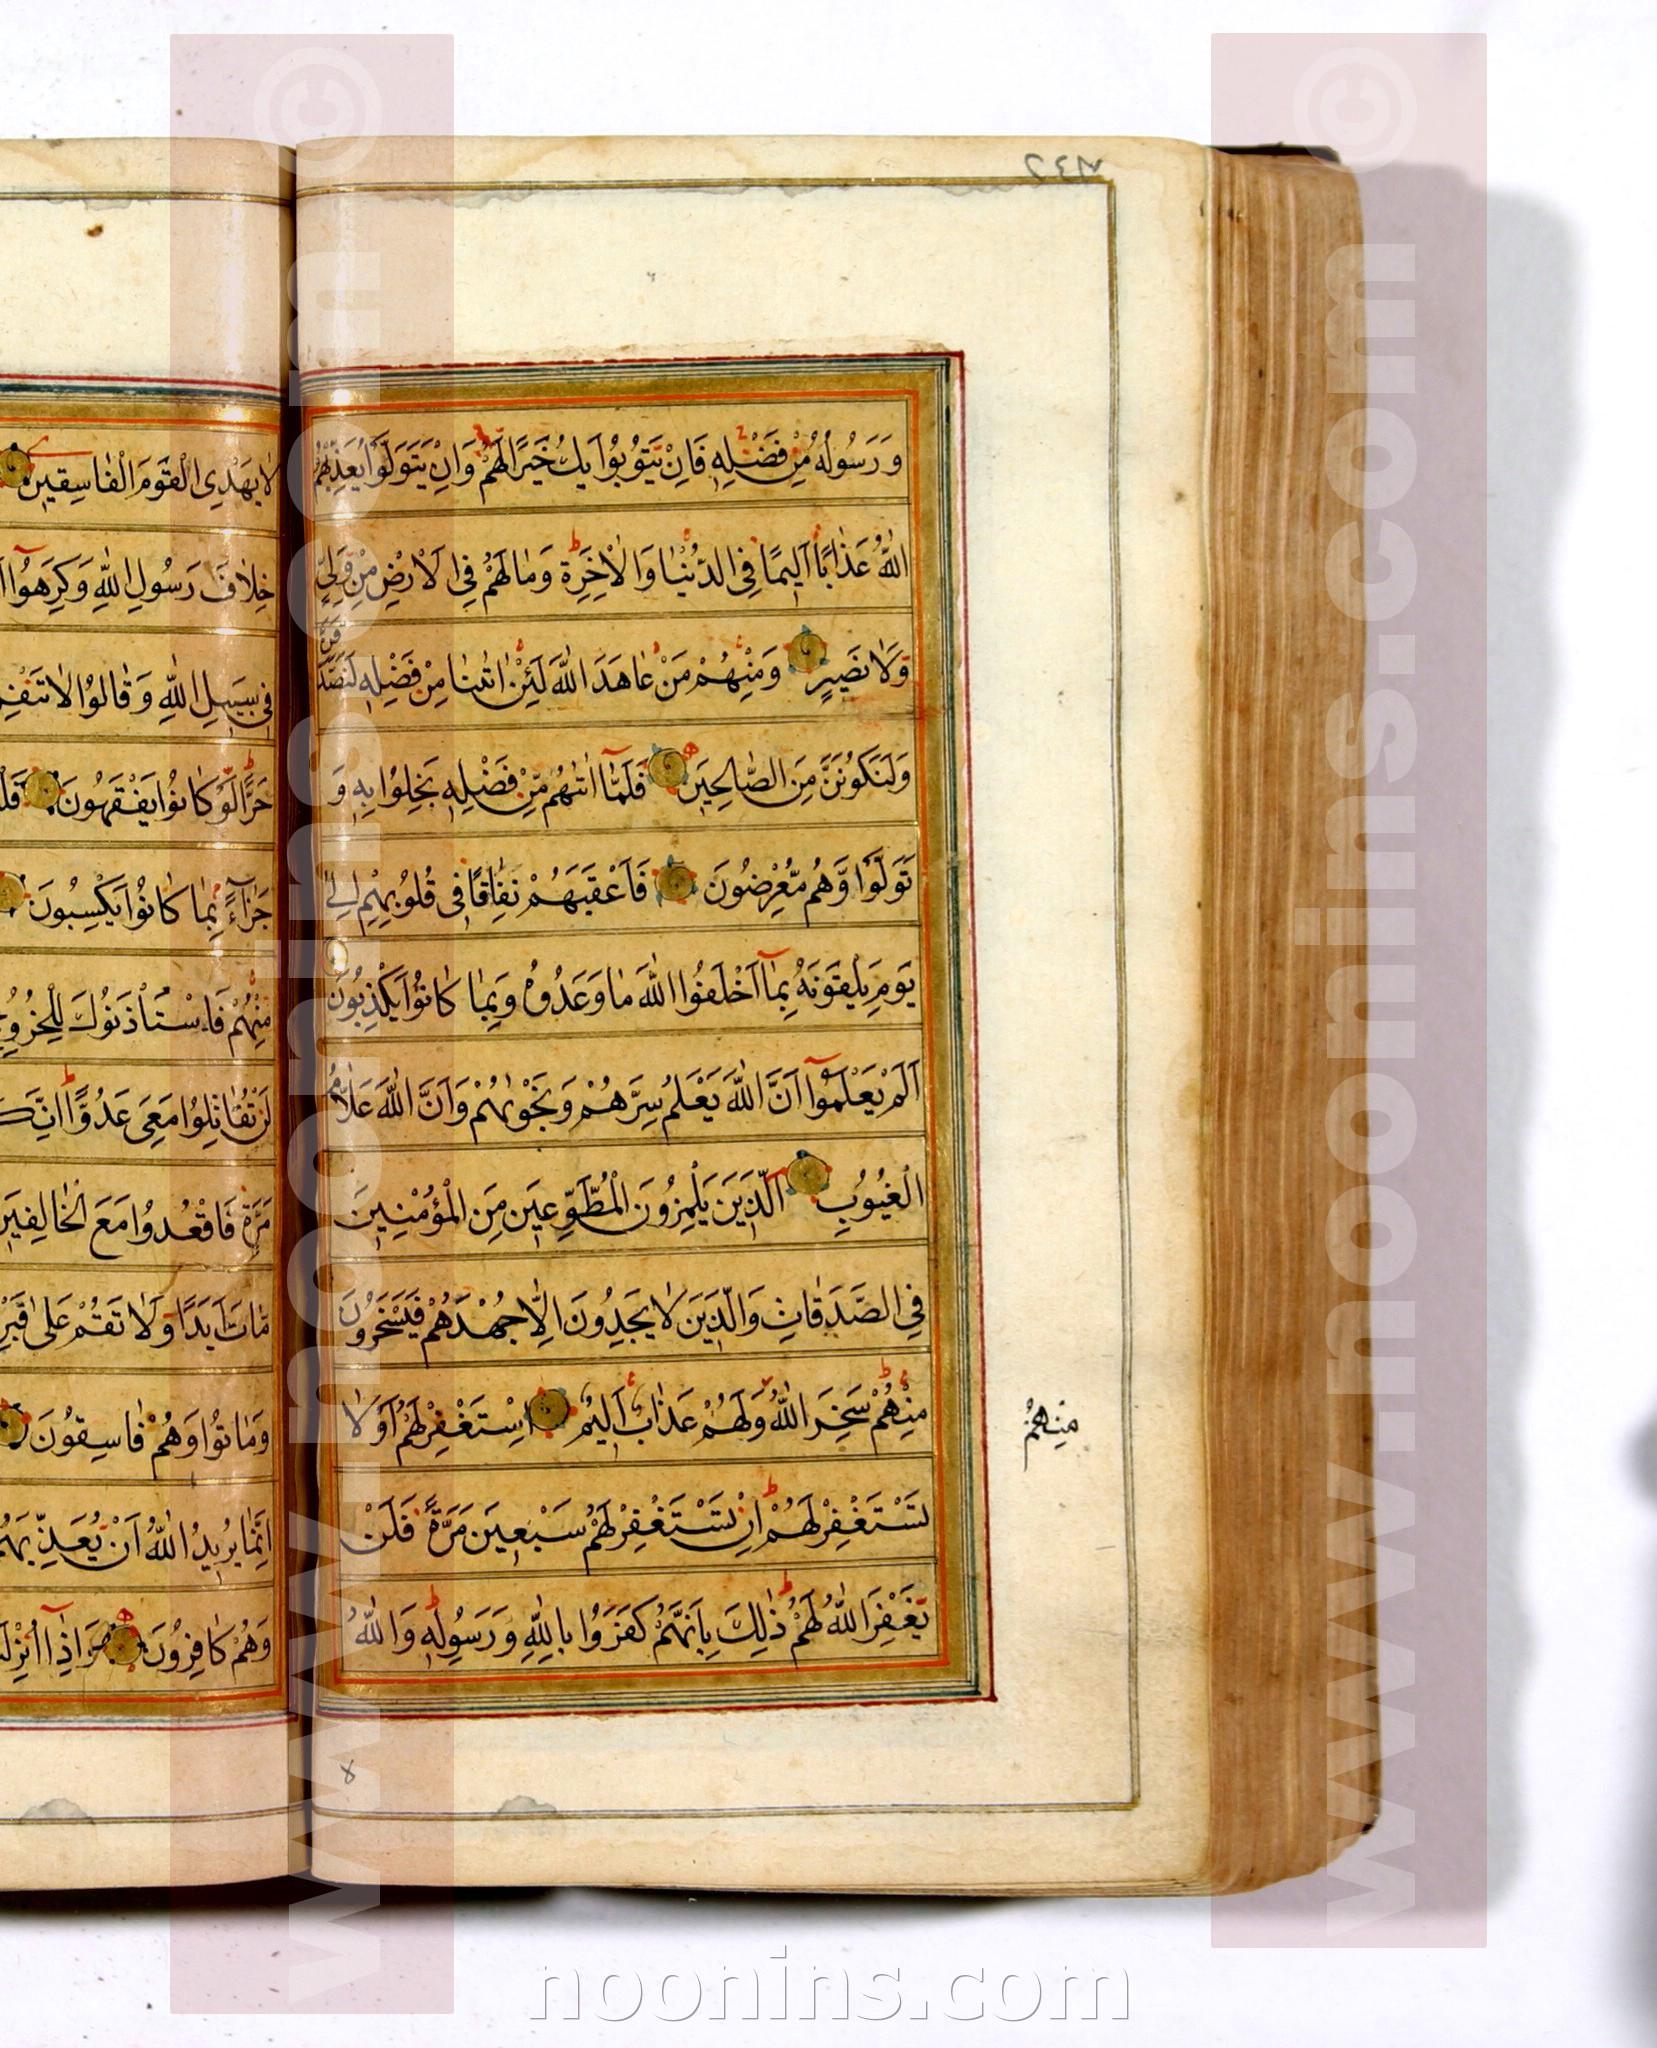 وَرَسُولُهُ مِنْ فَضْلِهِ فَاِنْ يَتُوبُوا يَكُ خَيْرًا لَهُمْ وَاِنْ يَتَوَلَّوْا يُعَذِّبْهُمُ
اللّٰهُ عَذٰابًا اَلِيمًا فِي الدُّنْيٰا وَالْاٰخِرَةِ وَمٰا لَهُمْ فِي الْاَرْضِ مِنْ وَلِيٍّ
وَلٰا نَصِيرٍ وَمِنْهُمْ مَنْ عٰاهَدَ اللّٰهَ لَئِنْ اٰتٰينٰا مِنْ فَضْلِهِ لَنَصَّدَّقَنَّ
وَلَنَكُونَنَّ مِنَ الصّٰالِحِينَ فَلَمّٰا اٰتٰهُمْ مِنْ فَضْلِهِ بَخِلُوا بِهِ وَ
تَوَلَّوْا وَهُمْ مُعْرِضُونَ فَاَعْقَبَهُمْ نِفٰاقًا فِي قُلُوبِهِمْ اِلٰى
يَوْمِ يَلْقَوْنَهُ بِمٰا اَخْلَفُوا اللّٰهَ مٰا وَعَدُوهُ وَبِمٰا كٰانُوا يَكْذِبُونَ
اَلَمْ يَعْلَمُوا اَنَّ اللّٰهَ يَعْلَمُ سِرَّهُمْ وَنَجْوٰيهُمْ وَاَنَّ اللّٰهَ عَلّٰامُ
الْغُيُوبِ اَلَّذِينَ يَلْمِزُونَ الْمُطَّوِّعِينَ مِنَ الْمُؤْمِنِينَ
فِي الصَّدَقٰاتِ وَالَّذِينَ لٰا يَجِدُونَ اِلّٰا جُهْدَهُمْ فَيَسْخَرُونَ
مِنْهُمْ سَخِرَ اللّٰهُ وَلَهُمْ عَذٰابٌ اَلِيمٌ اِسْتَغْفِرْ لَهُمْ اَوْ لٰا
تَسْتَغْفِرْ لَهُمْ اِنْ تَسْتَغْفِرْ لَهُمْ سَبْعِينَ مَرَّةً فَلَنْ
يَغْفِرَ اللّٰهُ لَهُمْ ذٰلِكَ بِاَنَّهُمْ كَفَرُوا بِاللّٰهِ وَرَسُولِهِ وَاللّٰهُ
مِنْهُمْ
لٰا يَهْدِي الْقَوْمَ الْفٰاسِقِينَ
خِلٰافَ رَسُولِ اللّٰهِ وَكَرِهُوا
فِي سَبِيلِ اللّٰهِ وَقٰالُوا لٰا
حَرًّا لَوْ كٰانُوا يَفْقَهُونَ
جَزٰاءً بِمٰا كٰانُوا يَكْسِبُونَ
مِنْهُمْ فَاسْتَأْذَنُوكَ لِلْخُرُوجِ
لَنْ تُقٰاتِلُوا مَعِيَ عَدُوًّا
مَرَّةٍ فَاقْعُدُوا مَعَ الْخٰالِفِينَ
مٰاتَ اَبَدًا وَلٰا تَقُمْ عَلٰى قَبْرِ
وَمٰاتُوا وَهُمْ فٰاسِقُونَ
اِنَّمٰا يُرِيدُ اللّٰهُ اَنْ يُعَذِّبَهُمْ
وَهُمْ كٰافِرُونَ وَاِذٰا اُنْزِلَتْ
www.noonins.com ©
www.noonins.com ©
noonins.com